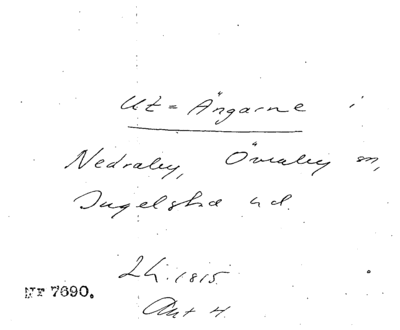 Ut = Ängarne i
Nedraby, Övraby sn,
Ingelstad hd.
Lh. 1815.
Akt 4.
NF 7690.